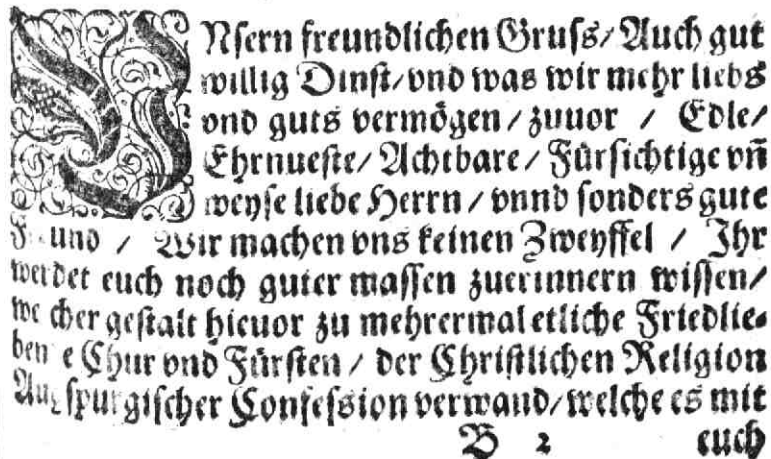 VNsern freundlichen Gruſs/ Auch gut
willig Dinſt/ vnd was wir mehr liebs
vnd guts vermögen / zuuor / Edle/
Ehrnueſte/ Achtbare / Fürſichtige vñ
weyſe liebe Herrn / vnnd ſonders gute
Freund / Wir machen vns keinen Zweyffel / Ihr
werdet euch noch guter maſſen zuerinnern wiſſen/
welcher geſtalt hieuor zu mehrermal etliche Friedlie⸗
bende Chur vnd Fürſten / der Chriſtlichen Religion
Augſpurgiſcher Confeſsion verwand/ welche es mit
B 2 euch